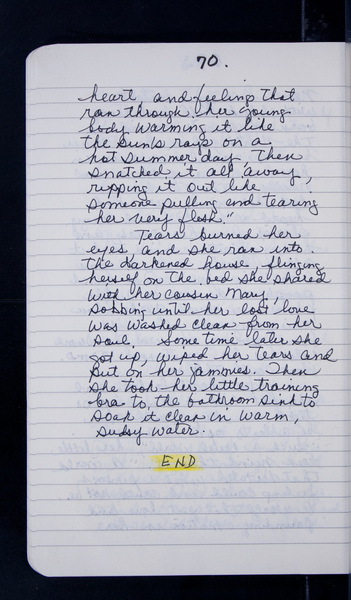 70.
heart and feelings that
ran through her young
body warming it like
the sun's rays on a
hot summer day. Then
snatched it all away,
ripping it out like
someone pulling and tearing
her very flesh."
Tears burned her
eyes and she ran into
the darkened house flinging
herself on the bed she shared
with her cousin Mary,
sobbing until her lost love
was washed clean from her
soul. Some time later she
got up, wiped her tears and
put on her jammies. Then
she took her little training
bra to the bathroom sink to
soak it clean in warm,
sudsy water.
END